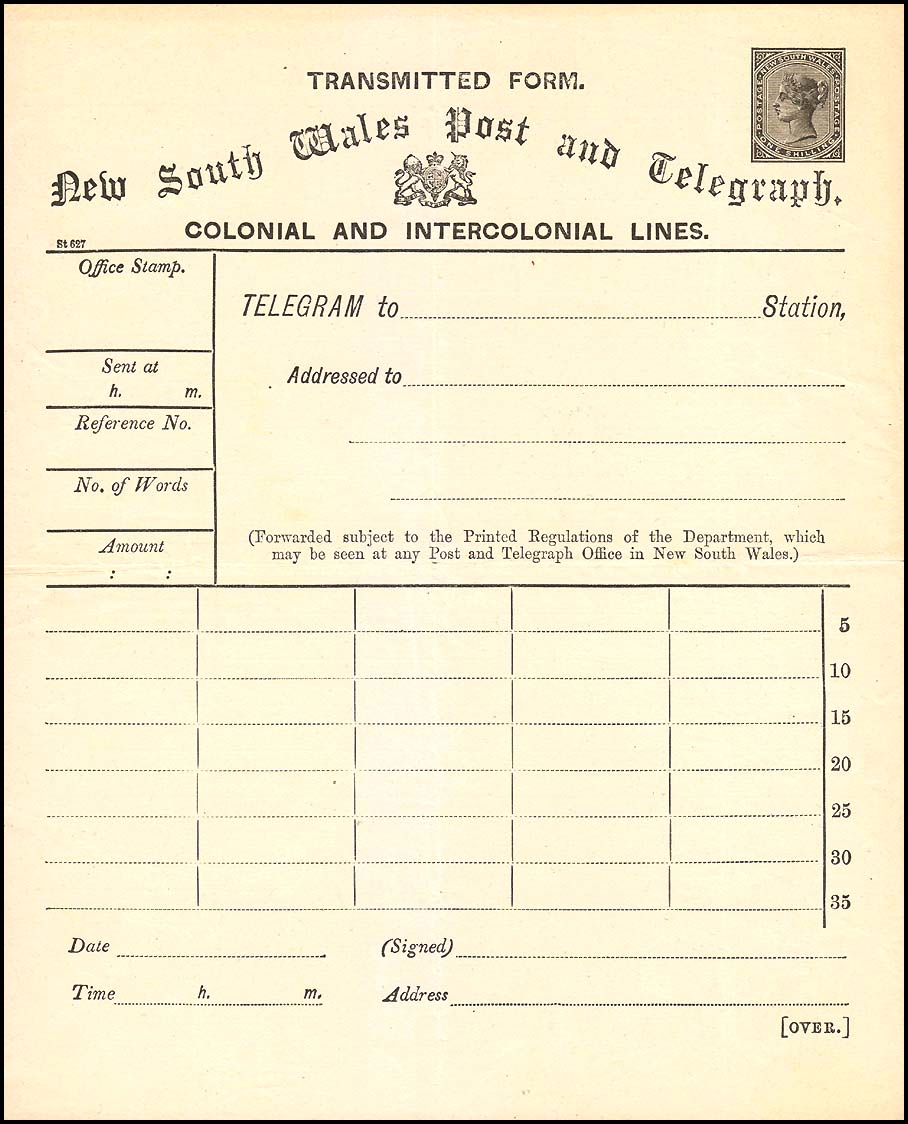 TRANSMITTED FORM.
New South Wales Post and Telegraph.
COLONIAL AND INTERCOLONIAL LINES.
St 627
POSTAGE
NEW SOUTH WALES
POSTAGE
ONE SHILLING
Office Stamp.
TELEGRAM to Station,
Sent at
h. m.
Addressed to
Reference No.
No. of Words
Amount
: :
(Forwarded subject to the Printed Regulations of the Department, which
may be seen at any Post and Telegraph Office in New South Wales.)
5
10
15
20
25
30
35
Date (Signed)
Time h. m. Address
[OVER.]